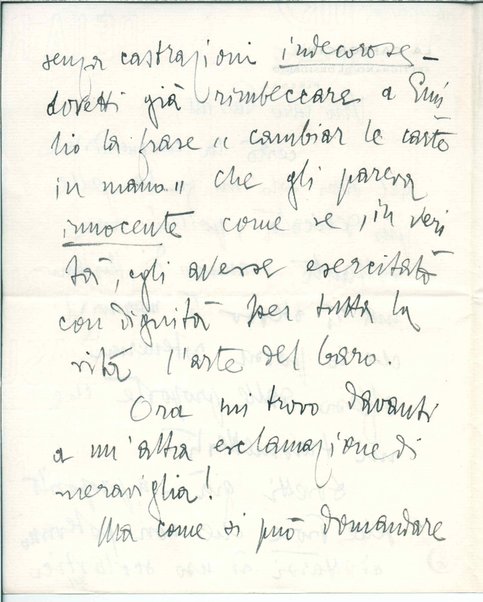 senza castrazioni indecorose –
dovetti già rimbeccare a Emi
lio la frase „ cambiar le carte
in mano „ che gli pareva
innocente come se, in veri
tà, egli avesse esercitato
con dignità per tutta la
vita l'arte del baro.
Ora mi trovo davanti
a un'altra esclamazione di
meraviglia!
Ma come si può domandare